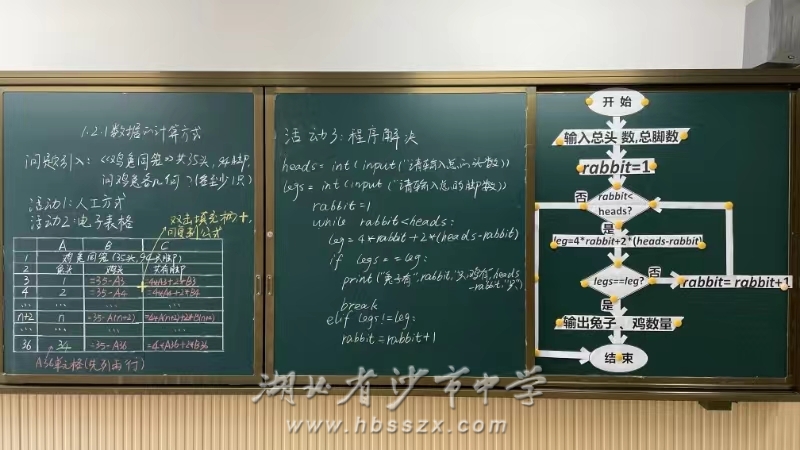 1.2.1数据的计算方式
问题引入:《鸡兔同笼》共35头,94脚,
问鸡兔各几何?(各至少1只)
活动1:人工方式
活动2:电子表格
双击填充柄"+",
可复制公式
A B C
1 鸡兔同笼(35头,94只脚)
2 兔头 鸡头 共有脚
3 1 =35-A3 =4*A3+2*B3
4 2 =35-A4 =4*A4+2*B4
… … … …
n+2 n =35-A(n+2) =4*A(n+2)+2*B(n+2)
… … … …
36 34 =35-A36 =4*A36+2*B36
A36单元格(先列再行)
活动3:程序解决
heads=int(input("请输入总的头数"))
legs=int(input("请输入总的脚数"))
rabbit=1
while rabbit<heads:
leg=4*rabbit+2*(heads-rabbit)
if legs==leg:
print("兔子有",rabbit,"只,鸡有",heads
-rabbit,"只")
break
elif legs!=leg:
rabbit=rabbit+1
开 始
输入总头 数,总脚数
rabbit=1
rabbit<
heads?
否
是
leg=4*rabbit+2*(heads-rabbit
legs==leg?
否
rabbit= rabbit+1
是
输出兔子、鸡数量
结 束
湖北省沙市中学
www.hbsszx.com